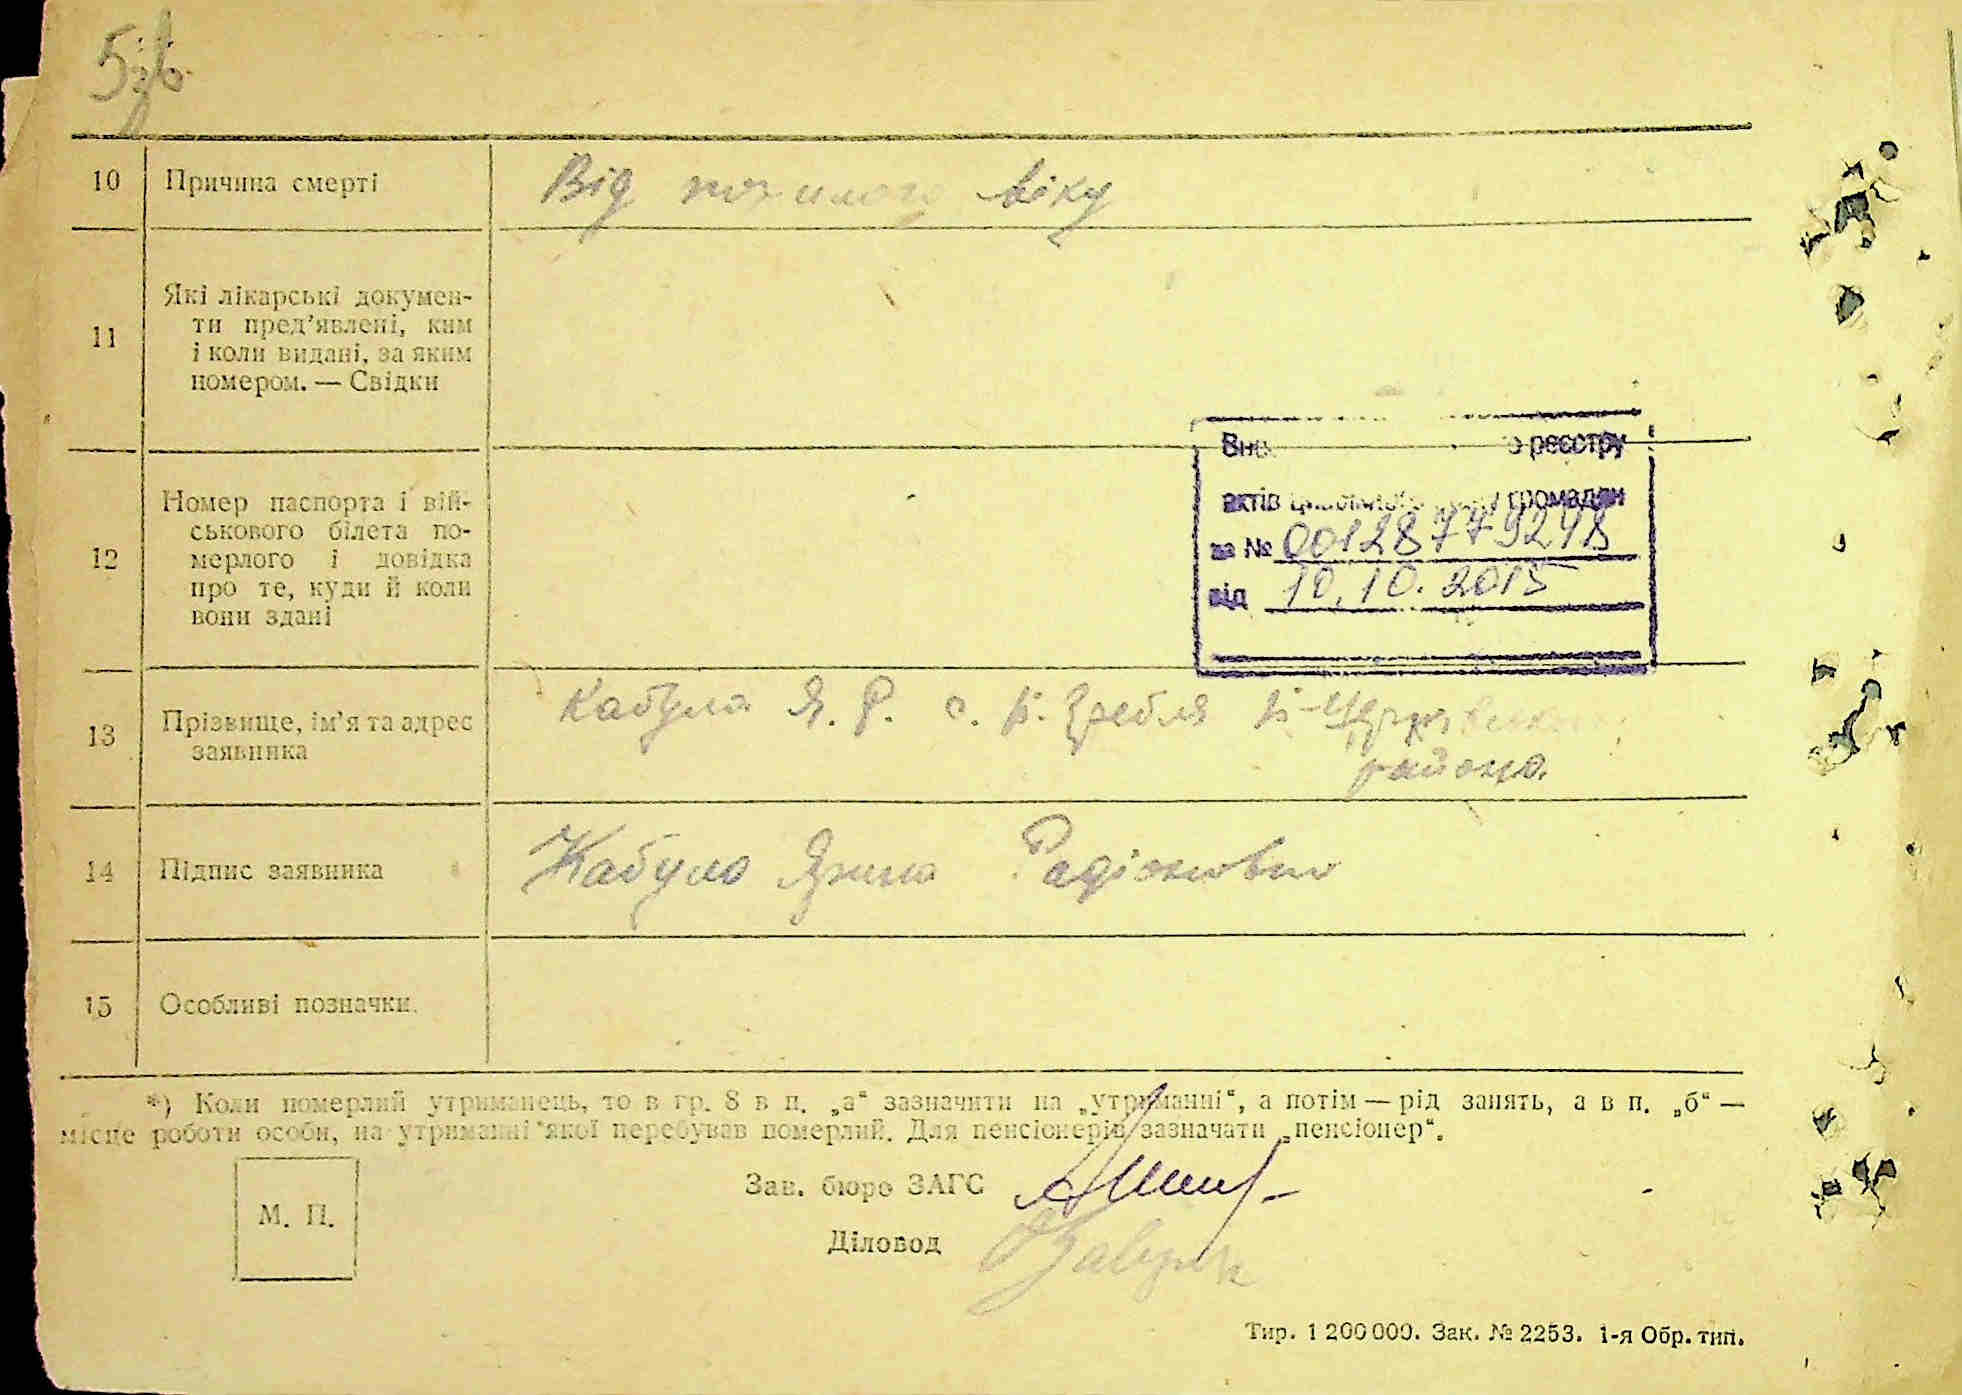 10 Причина смерті Від похилого віку
11 Які лікарські докумен-
ти пред’явлені, ким
і коли видані, за яким
номером. — Свідки
12 Номер паспорта і вій-
ськового білета по-
мерлого і довідка
про те, куди й коли
вони здані
реєстру
актів громадян
за № 00128779248
від 10.10.2015
13 Прізвище, ім’я та адрес
заявника
Кабула Я. Р. с. К. Гребля
району.
14 Підпис заявника Кабула Ярина Радіоновна
15 Особливі позначки.
*) Коли померлий утриманець, то в гр. 8 в п. „а“ зазначити на „утриманні“, а потім — рід занять, а в п. „б“ —
місце роботи особи, на утриманні якої перебував померлий. Для пенсіонерів зазначати „пенсіонер“.
М. П.
Зав. бюро ЗАГС
Діловод
Тир. 1 200 000. Зак. № 2253. 1-я Обр. тип.